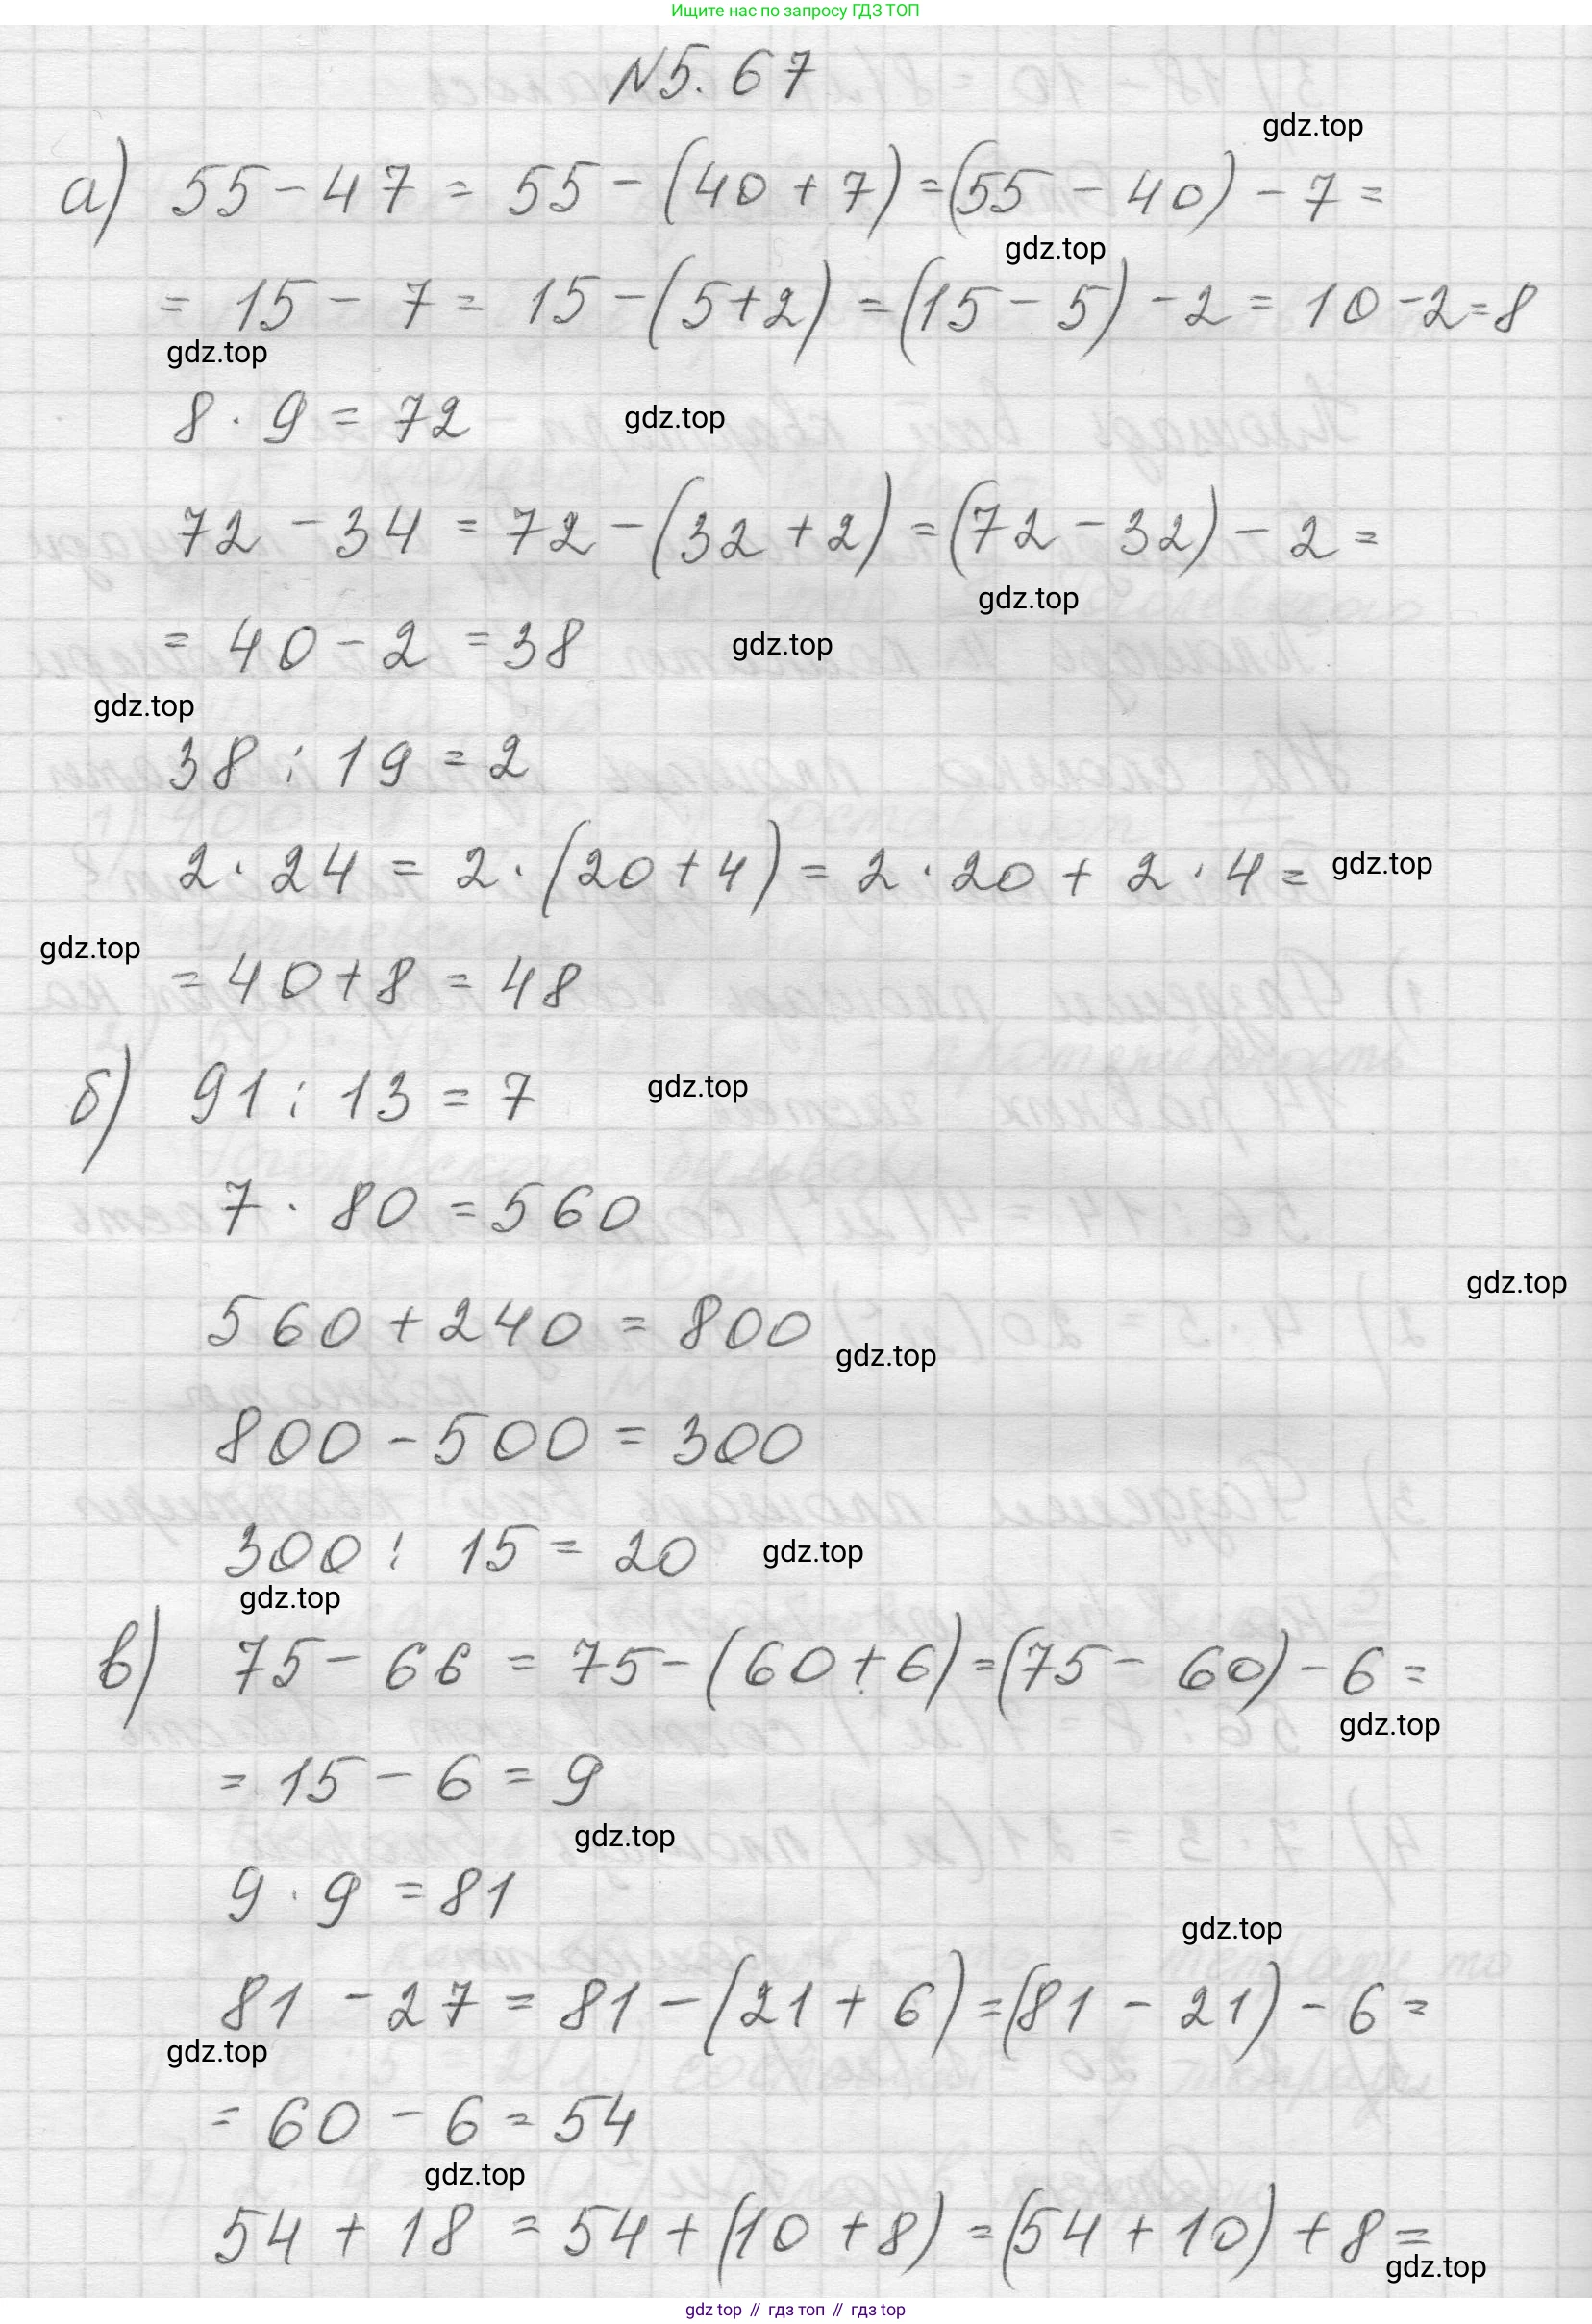 Ищите нас по запросу ГДЗ ТОП
№5.67
gdz.top
а) 55 - 47 = 55 - (40 + 7) = (55 - 40) - 7 =
gdz.top
= 15 - 7 = 15 - (5+2) = (15 - 5) - 2 = 10 - 2 = 8
gdz.top
8 · 9 = 72
gdz.top
72 - 34 = 72 - (32 + 2) = (72 - 32) - 2 =
gdz.top
= 40 - 2 = 38
gdz.top
gdz.top
38 : 19 = 2
2 · 24 = 2 · (20 + 4) = 2 · 20 + 2 · 4 =
gdz.top
gdz.top
= 40 + 8 = 48
б) 91 : 13 = 7
gdz.top
7 · 80 = 560
gdz.top
560 + 240 = 800
gdz.top
800 - 500 = 300
300 : 15 = 20
gdz.top
gdz.top
в) 75 - 66 = 75 - (60 + 6) = (75 - 60) - 6 =
gdz.top
= 15 - 6 = 9
gdz.top
9 · 9 = 81
gdz.top
81 - 27 = 81 - (21 + 6) = (81 - 21) - 6 =
gdz.top
= 60 - 6 = 54
gdz.top
54 + 18 = 54 + (10 + 8) = (54 + 10) + 8 =
gdz.top
gdz top // гдз топ // gdz top